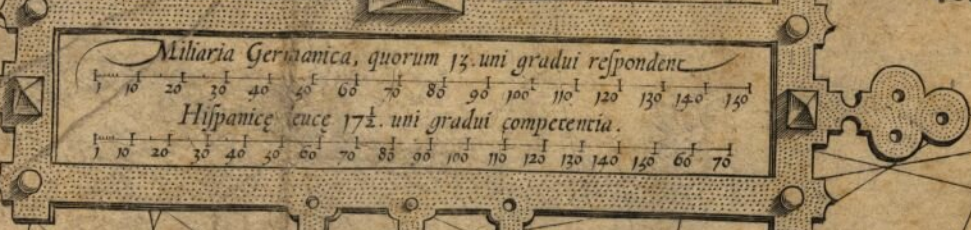 Miliaria Germanica, quorum 15. uni gradui reſpondent
1 10 20 30 40 50 60 70 80 90 100 110 120 130 140 150
Hiſpanicę leucę 17½. uni gradui competentia.
1 10 20 30 40 50 60 70 80 90 100 110 120 130 140 150 60 70